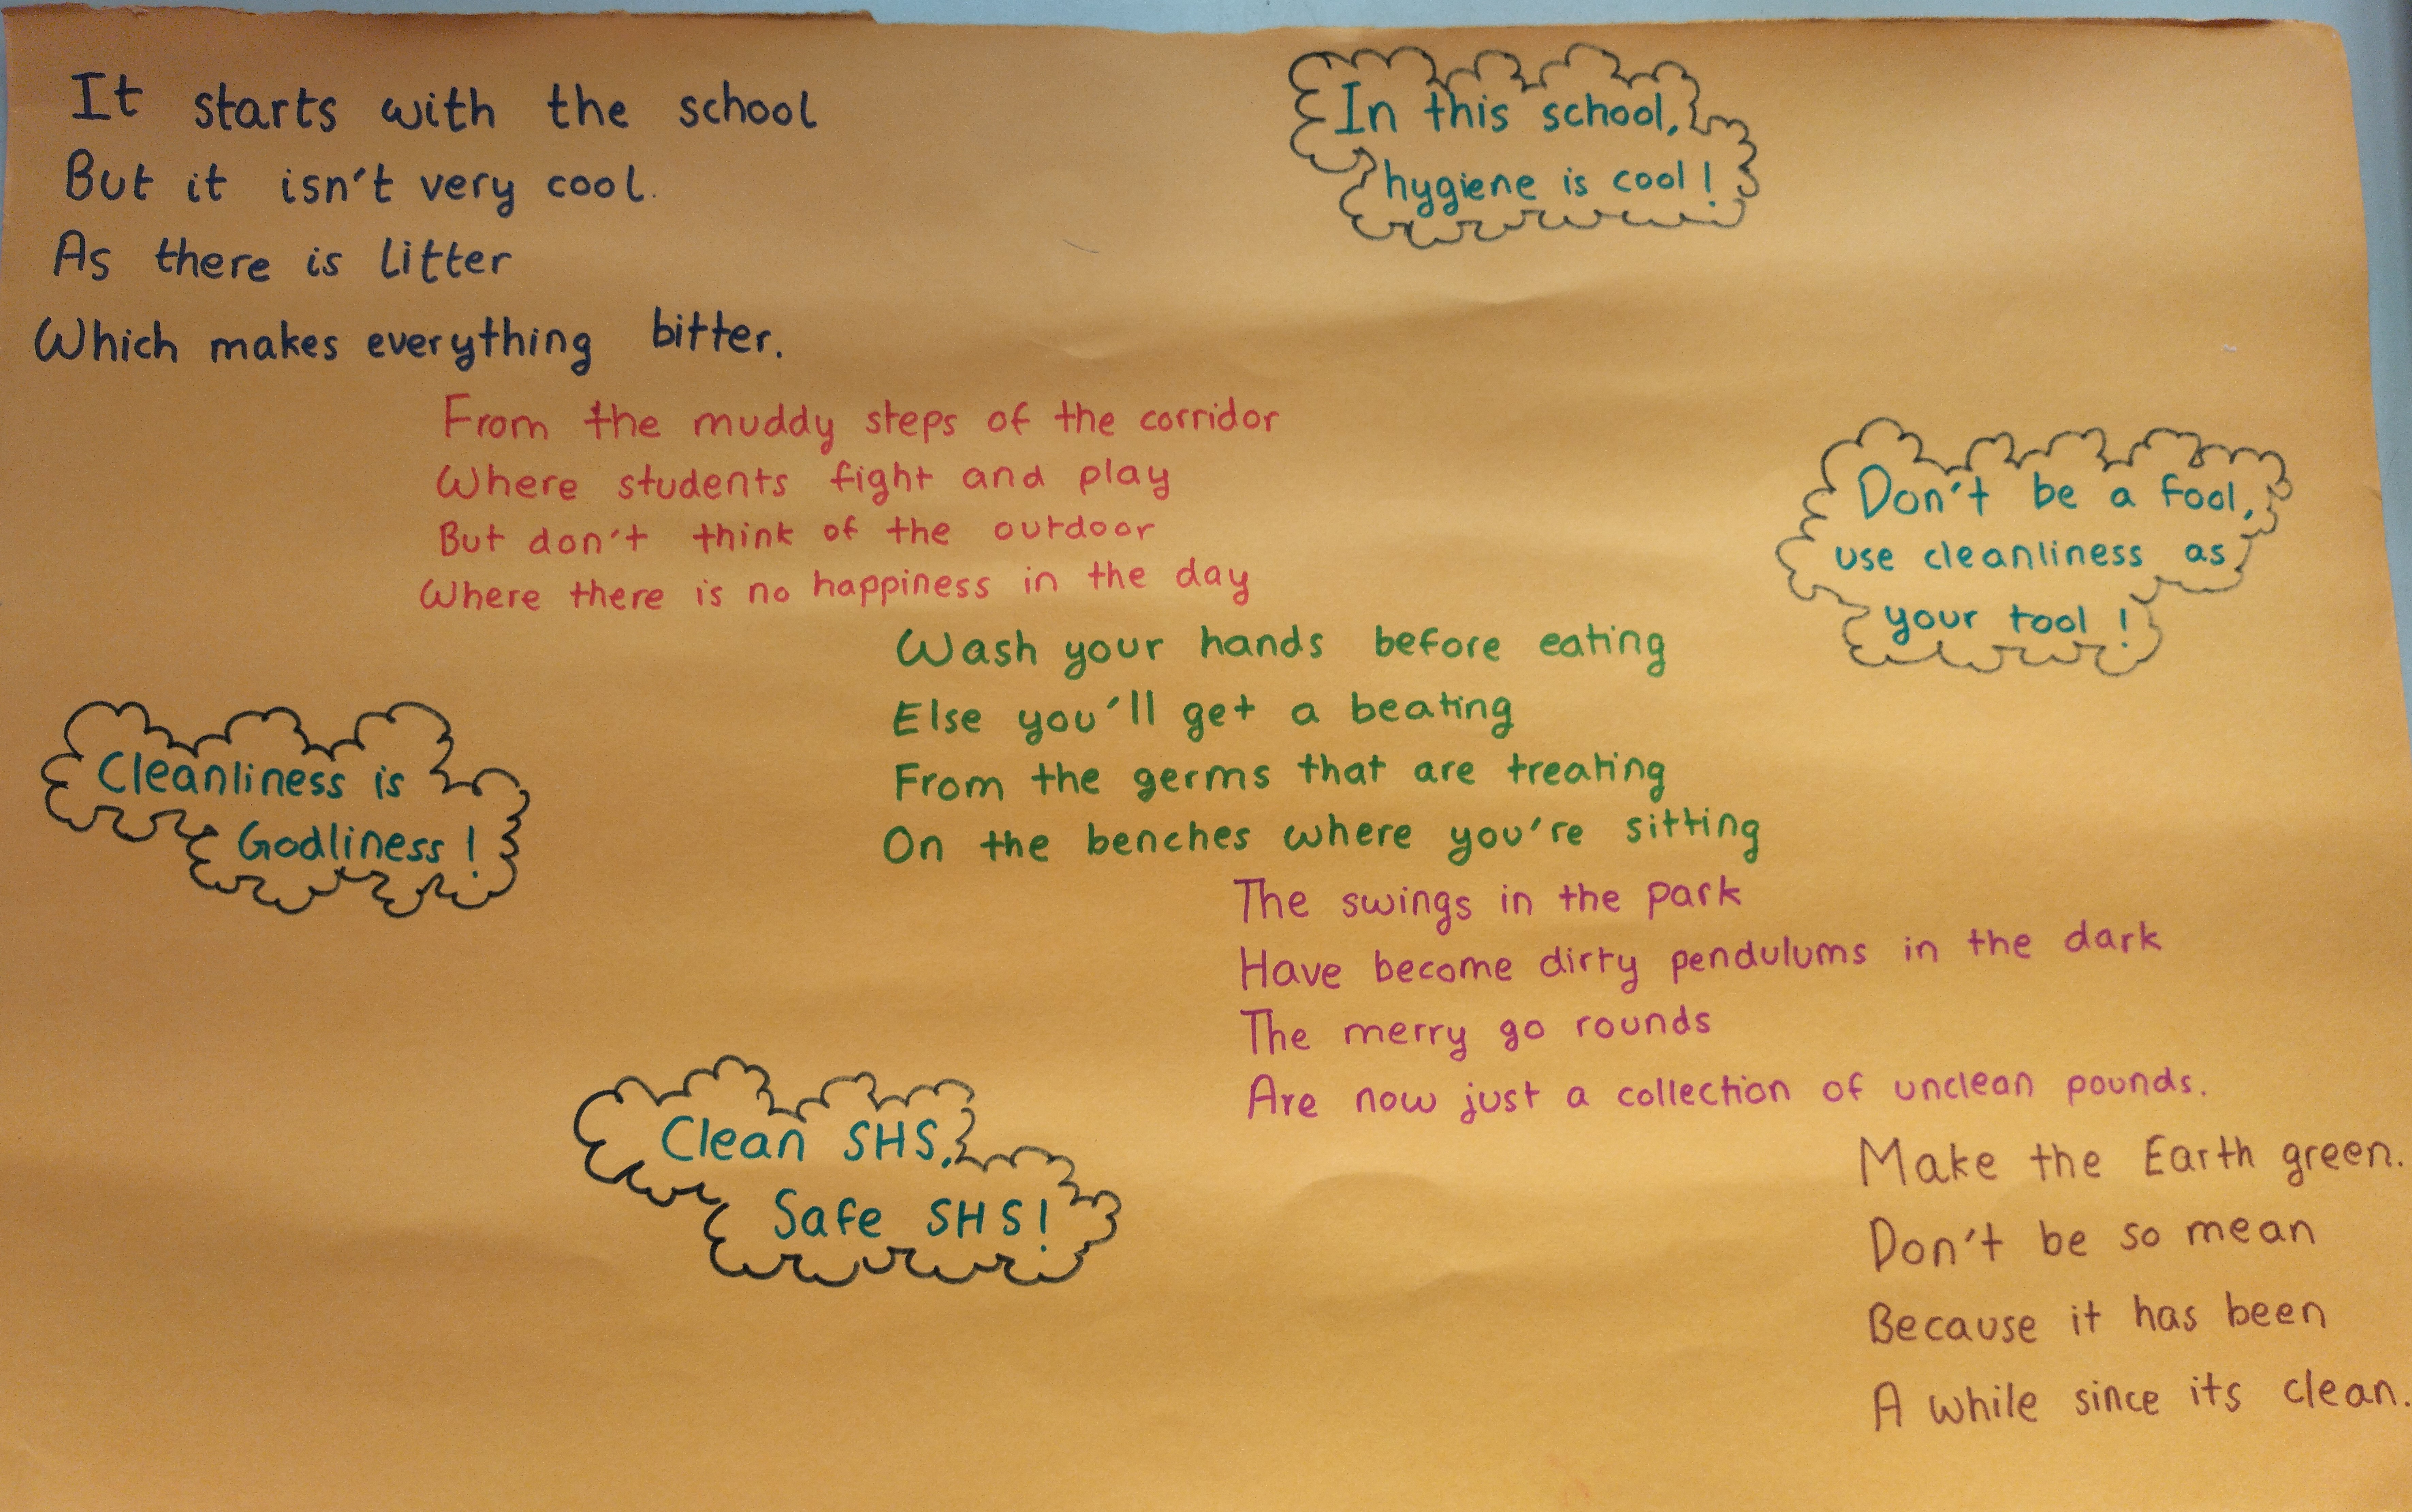 It starts with the school
But it isn't very cool.
As there is litter
Which makes everything bitter.
In this school,
hygiene is cool!
From the muddy steps of the corridor
Where students fight and play
But don't think of the outdoor
Where there is no happiness in the day
Don't be a fool,
use cleanliness as
your tool!
Wash your hands before eating
Else you'll get a beating
From the germs that are treating
On the benches where you're sitting
Cleanliness is
Godliness!
The swings in the park
Have become dirty pendulums in the dark
The merry go rounds
Are now just a collection of unclean pounds.
Clean SHS,
Safe SHS!
Make the Earth green.
Don't be so mean
Because it has been
A while since its clean.